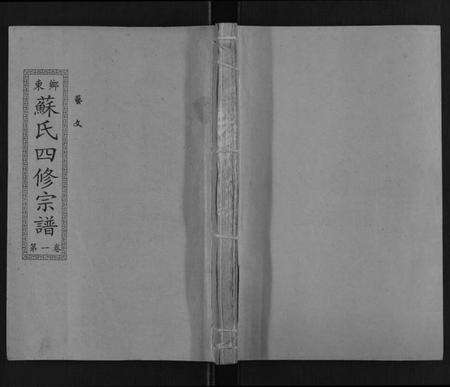 東鄉
蘇氏四修宗譜
第一卷
藝文